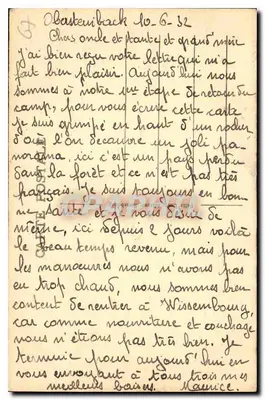 67
Obasteinback 10-6-32
Chers oncle et tante et grand mère
j'ai bien reçu votre lettre qui m'a
fait bien plaisir. Aujourd'hui nous
sommes à notre 1ère étape de retour du
camp, pour vous écrire cette carte
Je suis grimpé en haut d'un rocher
d'où l'on découvre un joli pa-
norama, ici c'est un pays perdu
dans la forêt et ce n'est pas très
français. Je suis toujours en bon-
ne santé et je vous désire de
même, ici depuis 2 jours voilà
le beau temps revenu, mais pour
les manœuvres nous n'avons pas
eu trop chaud, nous sommes bien
content de rentrer à Wissembourg,
car comme nourriture et couchage
nous n'étions pas très bien. Je
termine pour aujourd'hui en
vous envoyant à tous trois mes
meilleurs baisers. Maurice.
CARTE POSTALE